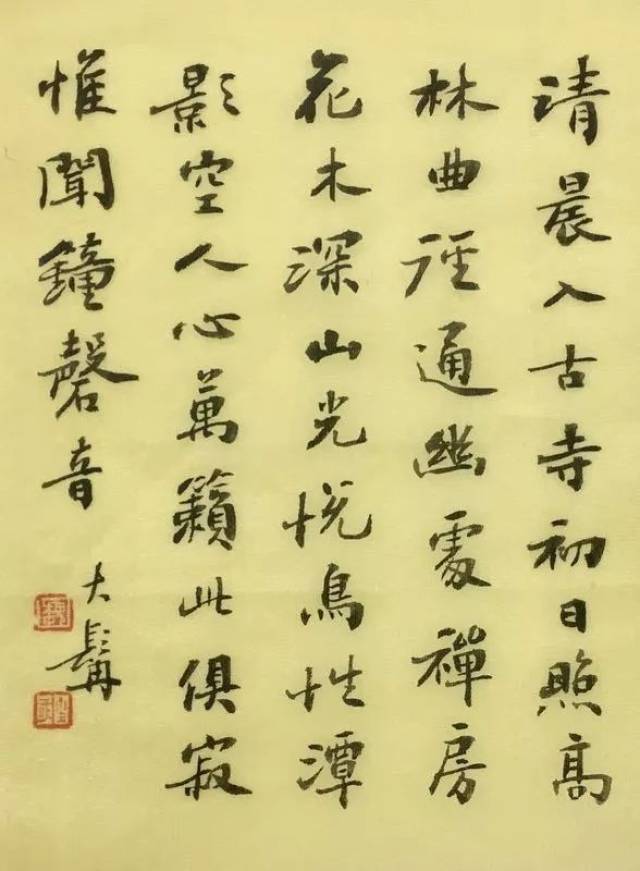 清晨入古寺初日照高
林曲徑通幽處禪房
花木深山光悅鳥性潭
影空人心萬籟此俱寂
惟聞鐘磬音
大髯